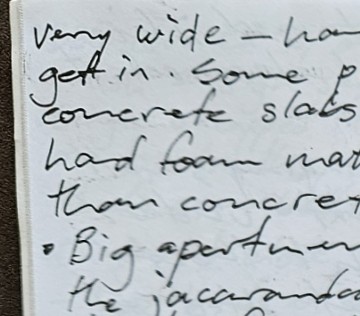 very wide – ha
get in. Some p
concrete slabs
had foam mat
than concret
• Big apartmen
the jacaranda